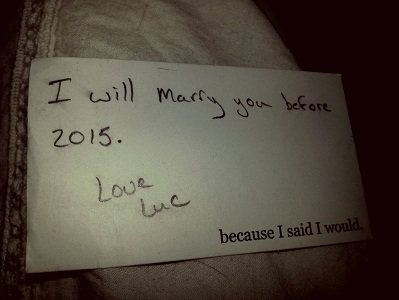 I will marry you before
2015.
Love
Luc
because I said I would.